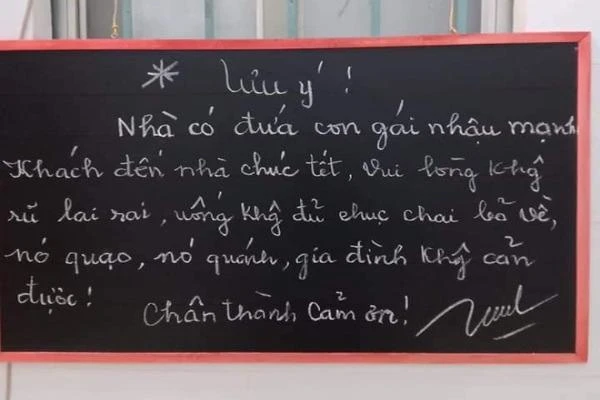 * Lưu ý !
Nhà có đứa con gái nhậu mạnh
Khách đến nhà chúc tết, vui lòng khg
rủ lai rai, uống khg đủ chục chai bỏ về,
nó quạo, nó quánh, gia đình khg cản
được!
Chân thành cảm ơn!